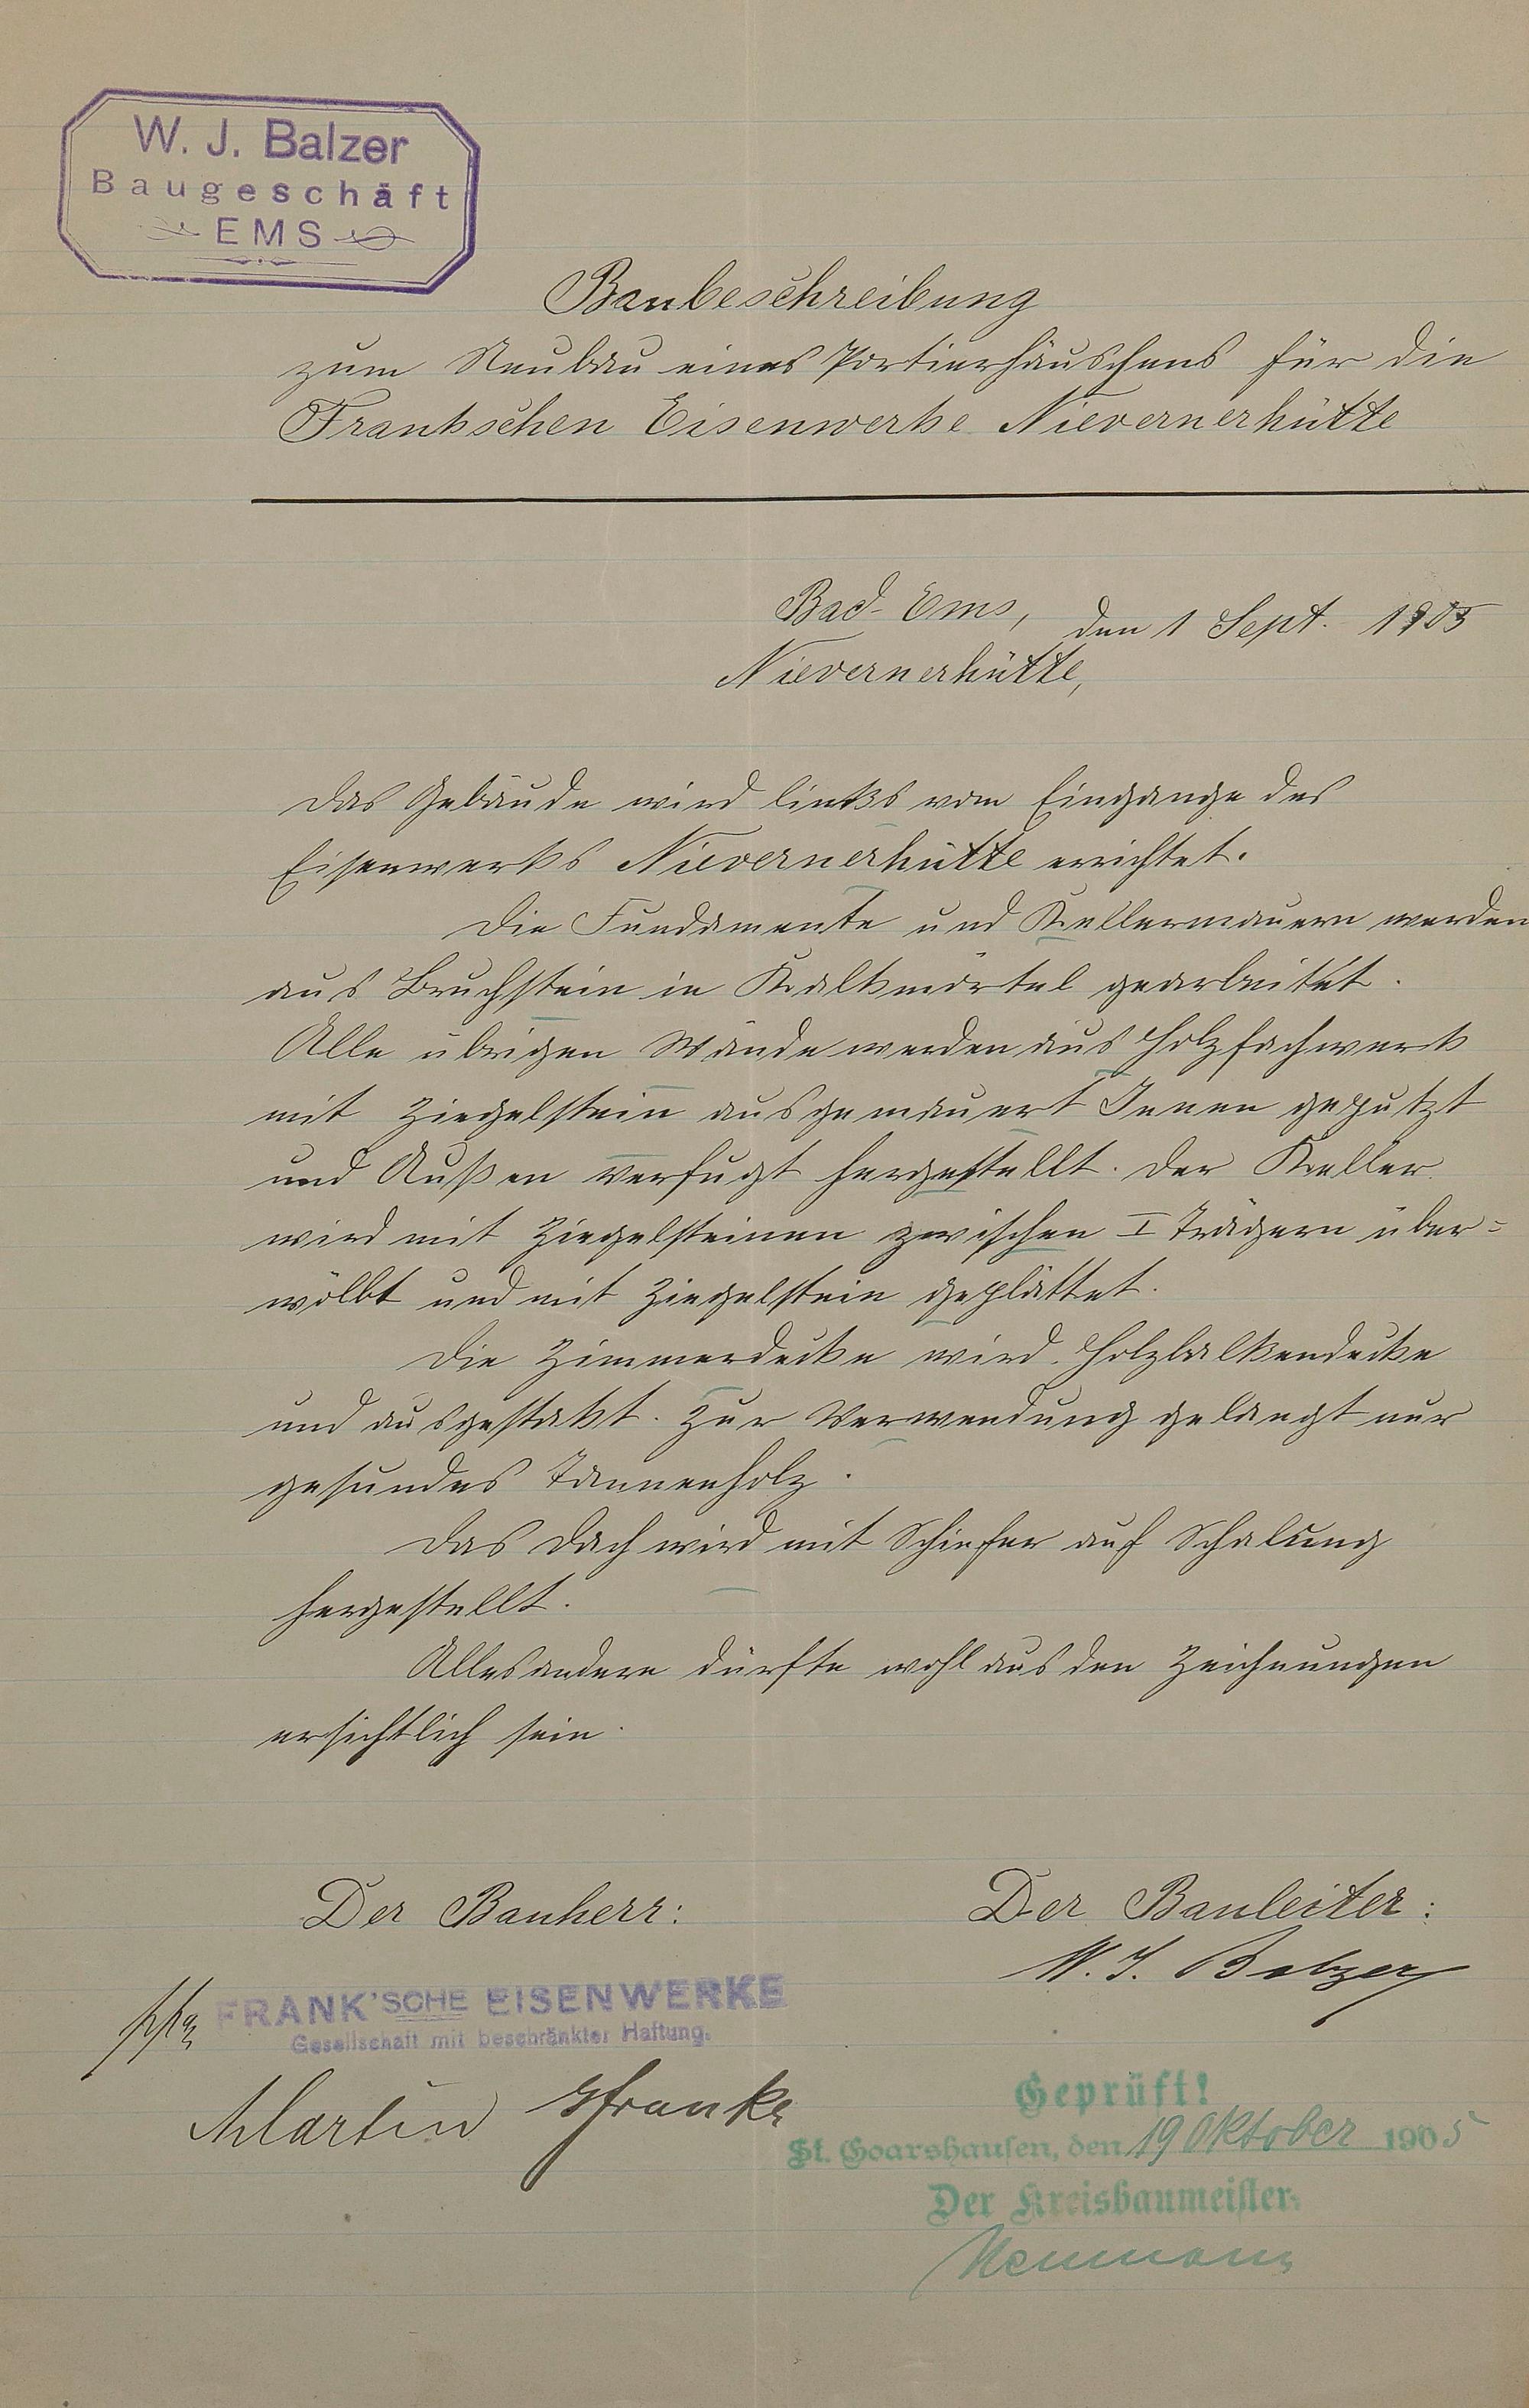 W. J. Balzer
Baugeschäft
EMS
Baubeschreibung
zum Neubau eines Portierhäuschens für die
Frankschen Eisenwerke Nievernerhütte
Bad-Ems, den 1 Sept. 1905
Nievernerhütte,
Das Gebäude wird links vom Eingange des
Eisenwerks Nievernerhütte errichtet.
Die Fundamente und Kellermauern werden
aus Bruchstein in Kalkmörtel gearbeitet.
Alle übrigen Wände werden aus Holzfachwerk
mit Ziegelstein ausgemauert Innen geputzt
und Außen verfugt hergestellt. Der Keller
wird mit Ziegelsteinen zwischen I Trägern über=
wölbt und mit Ziegelstein geplättet.
Die Zimmerdecke wird Holzbalkendecke
und ausgestakt. Zur Verwendung gelangt nur
gesundes Tannenholz.
Das Dach wird mit Schiefer auf Schalung
hergestellt.
Alles andere dürfte wohl aus den Zeichnungen
ersichtlich sein.
Der Bauherr:
Der Bauleiter:
W. J. Balzer
ppa FRANK'SCHE EISENWERKE
Gesellschaft mit beschränkter Haftung.
Martin Franke
Geprüft!
St. Goarshausen, den 19 Oktober 1905
Der Kreisbaumeister.
Neumann